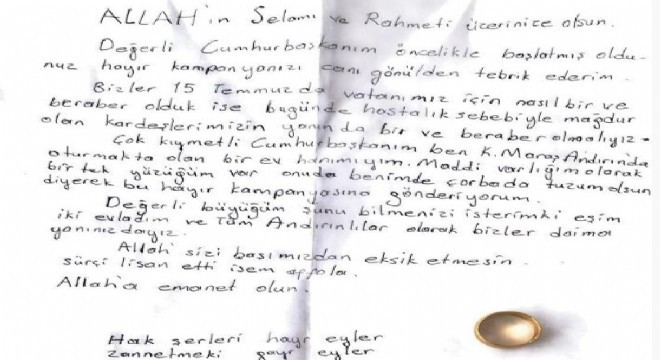 ALLAH'ın Selamı ve Rahmeti üzerinize olsun.
Değerli Cumhurbaşkanım öncelikle başlatmış oldu-
nuz hayır kampanyanızı canı gönülden tebrik ederim.
Bizler 15 Temmuzda vatanımız için nasıl bir ve
beraber olduk ise bugünde hastalık sebebiyle mağdur
olan kardeşlerimizin yanında bir ve beraber olmalıyız.
Çok kıymetli Cumhurbaşkanım ben K.Maraş Andırında
oturmakta olan bir ev hanımıyım. Maddi varlığım olarak
bir tek yüzüğüm var onuda benimde çorbada tuzum olsun
diyerek bu hayır kampanyasına gönderiyorum.
Değerli büyüğüm şunu bilmenizi isterimki eşim
iki evladım ve Tüm Andırınlılar olarak bizler daima
yanınızdayız.
Allah sizi başımızdan eksik etmesin.
sürçi lisan etti isem affola.
Allah'a emanet olun.
Hak şerleri hayr eyler
zannetmeki gayr eyler